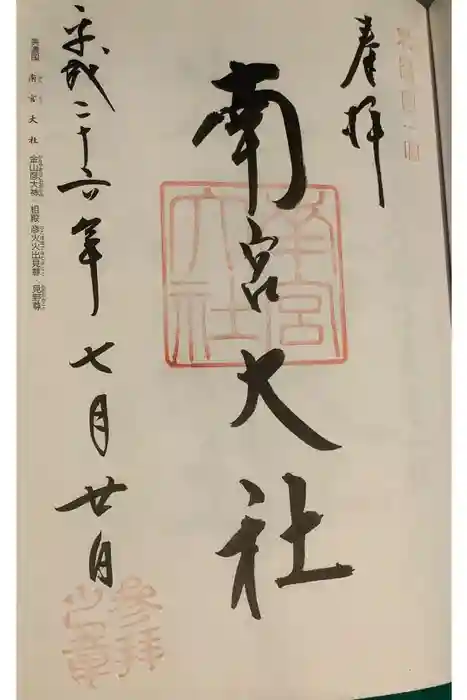 奉拝
南宮大社
南宮
大社
平成二十六年七月廿日
參拝
之章
美濃国 南宮大社 金山彦大神・相殿 彦火火出見尊・見野尊